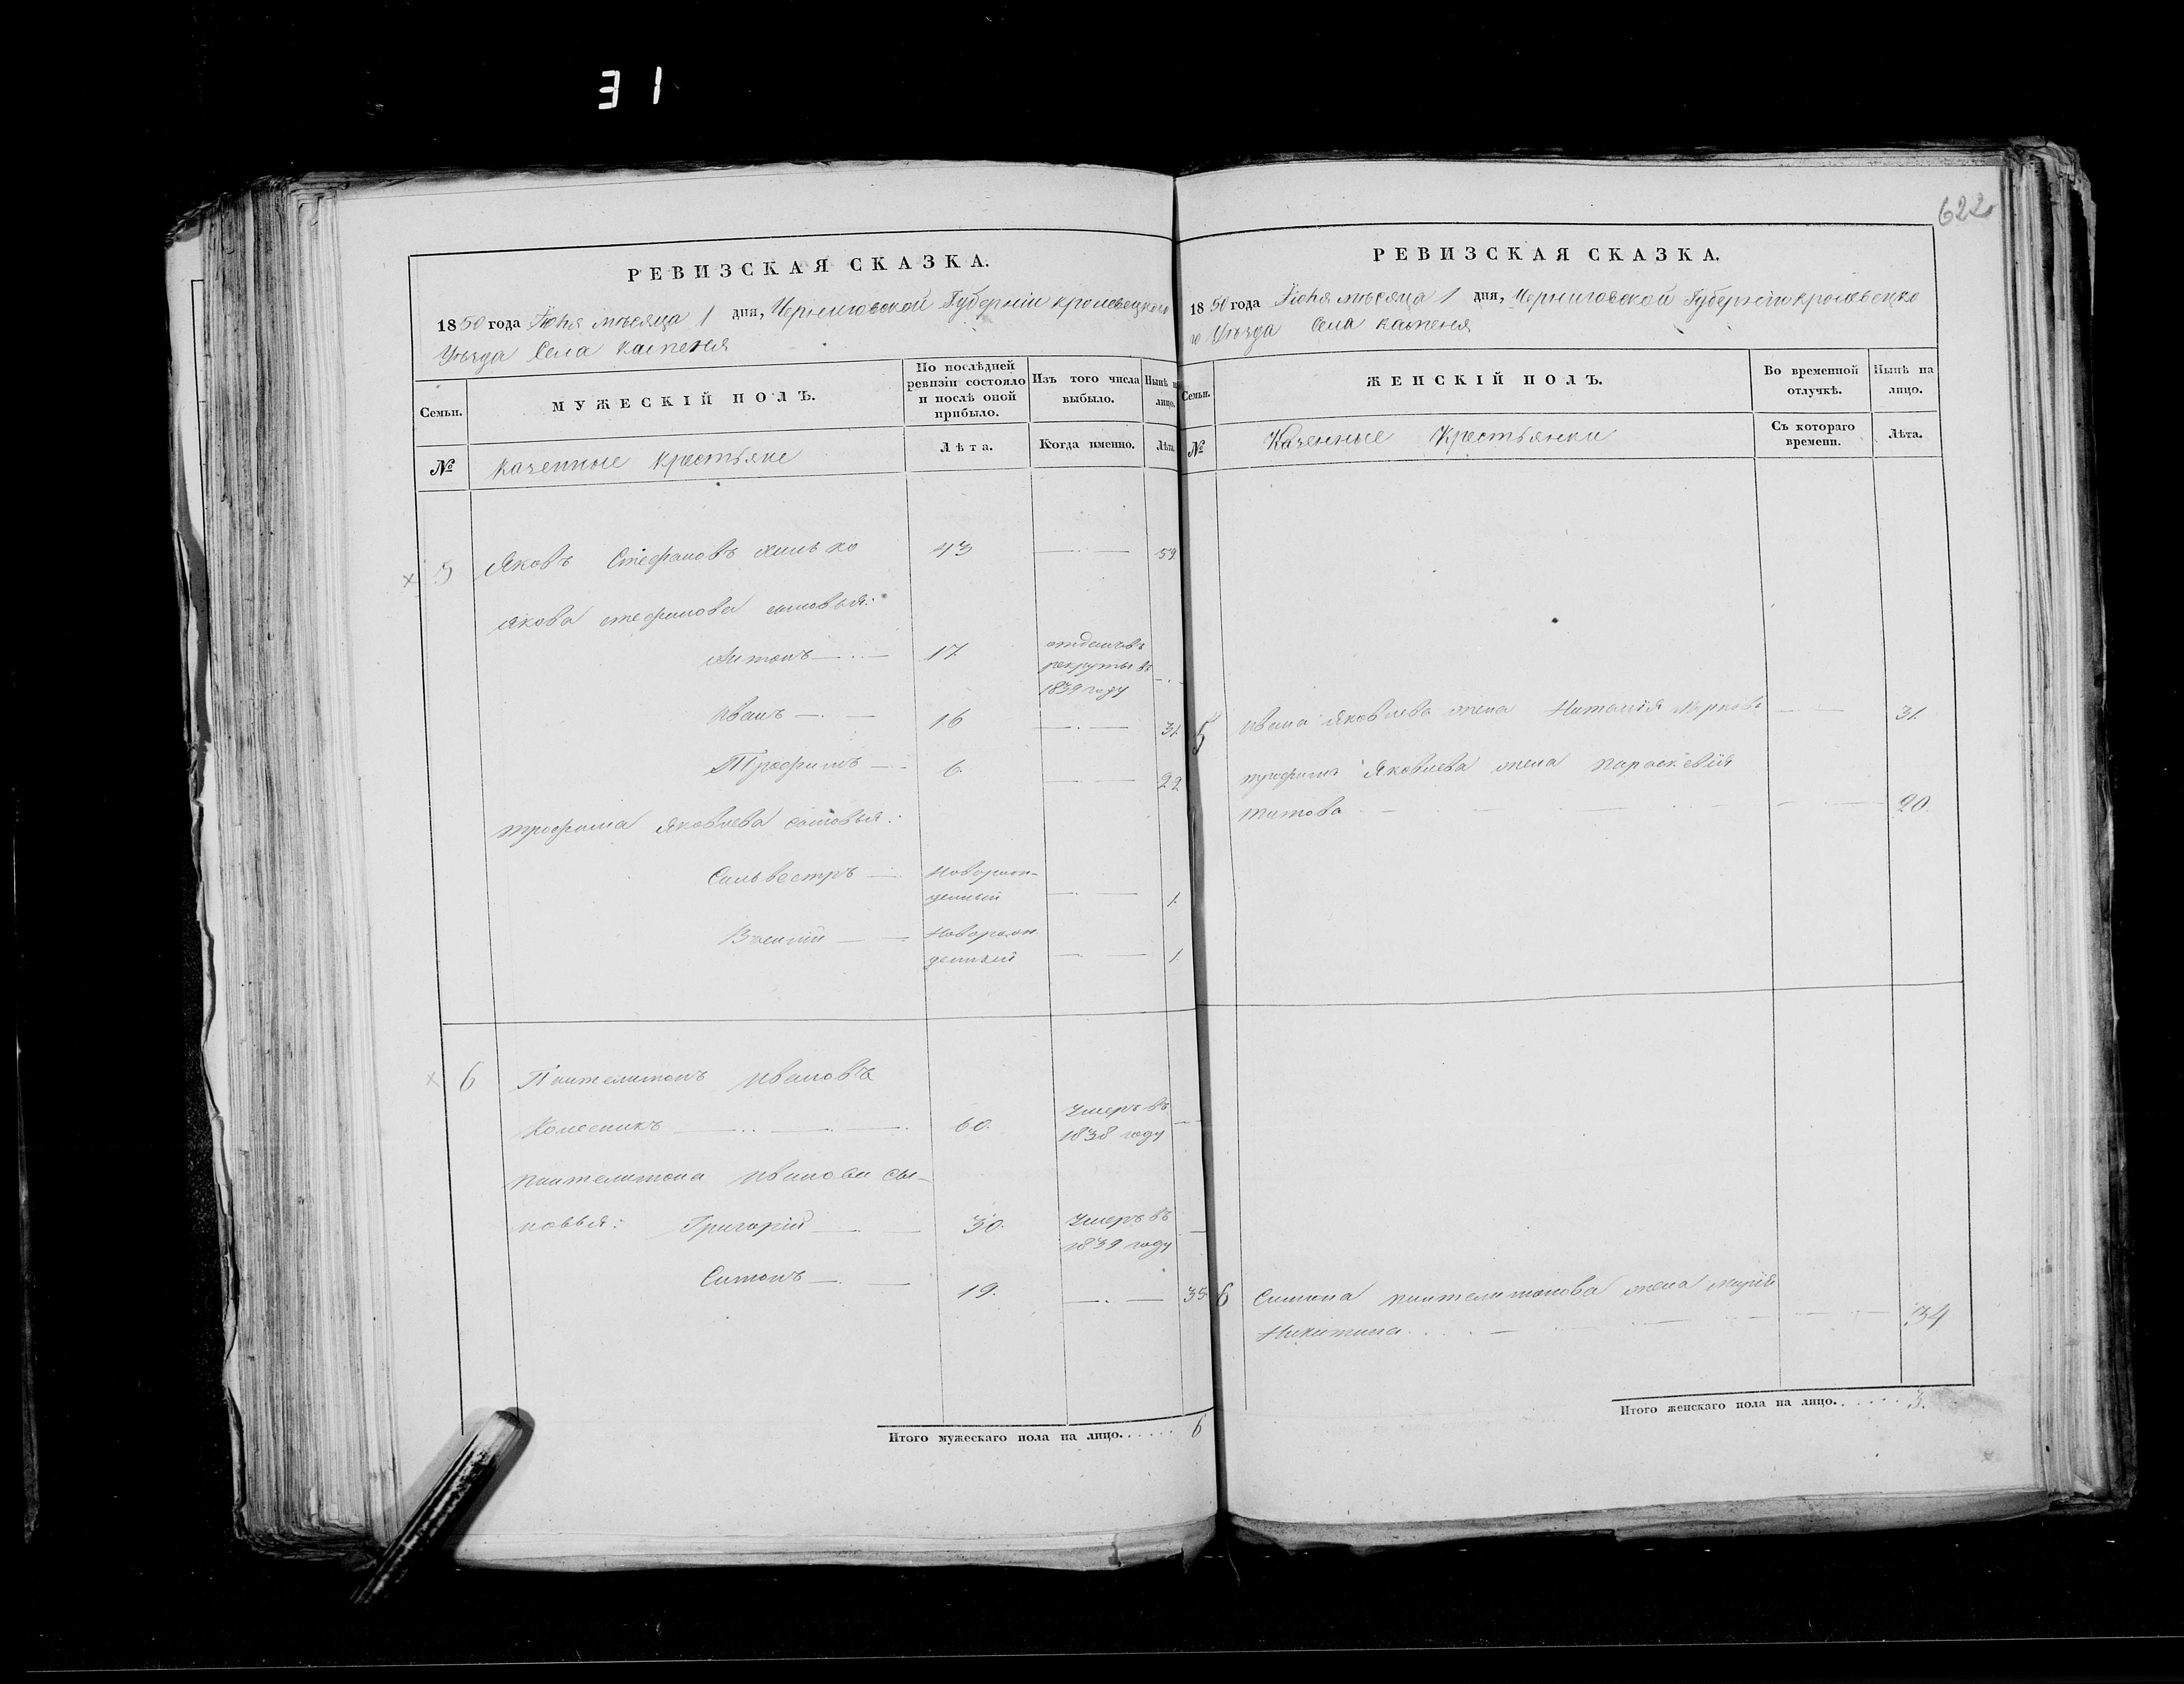 31
622
РЕВИЗСКАЯ СКАЗКА.
1850 года Іюня мѣсяца 1 дня, Черниговской Губерніи Кролевецкого
Уѣзда Села Каменя
Семьи.
МУЖЕСКІЙ ПОЛЪ.
По послѣдней ревизіи состояло и послѣ оной прибыло.
Изъ того числа выбыло.
Нынѣ на лицо.
№
Казенные Крестьяне
Лѣта.
Когда именно.
Лѣта.
5 Яковъ Стефановъ 43 59
Якова Стефанова сыновья:
Антонъ 17 отданъ въ
рекруты въ
1839 году
Иванъ 16 31.
Трофимъ 6. 22
Трофима Яковлева сыновья:
Сильвестръ Новорож-
денный 1.
Новорож-
денный 1.
6 Пантелимонъ Ивановъ
Колесникъ 60. Умеръ въ
1838 году
Пантелимона Иванова сы-
новья: Григорій 30. Умеръ въ
1839 году
Симонъ 19. 35.
Итого мужескаго пола на лицо...... 6
РЕВИЗСКАЯ СКАЗКА.
1850 года Іюня мѣсяца 1 дня, Черниговской Губерніи Кролевецко
го Уѣзда Села Каменя
Семьи.
ЖЕНСКІЙ ПОЛЪ.
Во временной отлучкѣ.
Нынѣ на лицо.
№
Казенные Крестьянки
Съ котораго времени.
Лѣта.
5 Ивана Яковлева жена 31.
Трофима Яковлева жена Параскевія
Титова 20.
6 Симона Пантелимонова жена Марія
Никитина 34
Итого женскаго пола на лицо...... 3.